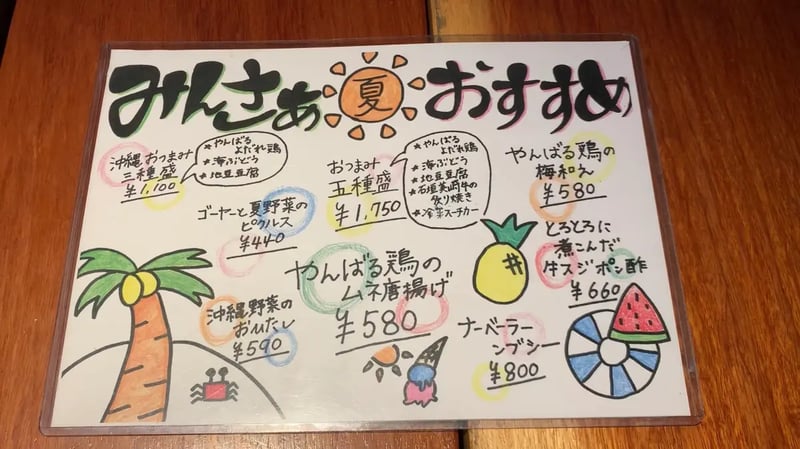 みんさぁ 夏 おすすめ
沖縄おつまみ
三種盛
¥1,100
★やんばる
よだれ鶏
★海ぶどう
★地豆豆腐
おつまみ
五種盛
¥1,750
★やんばる
よだれ鶏
★海ぶどう
★地豆豆腐
★石垣美崎牛の
炙り焼き
★冷菜スーチカー
やんばる鶏の
梅和え
¥580
ゴーヤーと夏野菜の
ピクルス
¥440
とろとろに
煮こんだ
牛スジポン酢
¥660
やんばる鶏の
ムネ唐揚げ
¥580
沖縄野菜の
おひたし
¥590
ナーベーラー
ンブシー
¥800